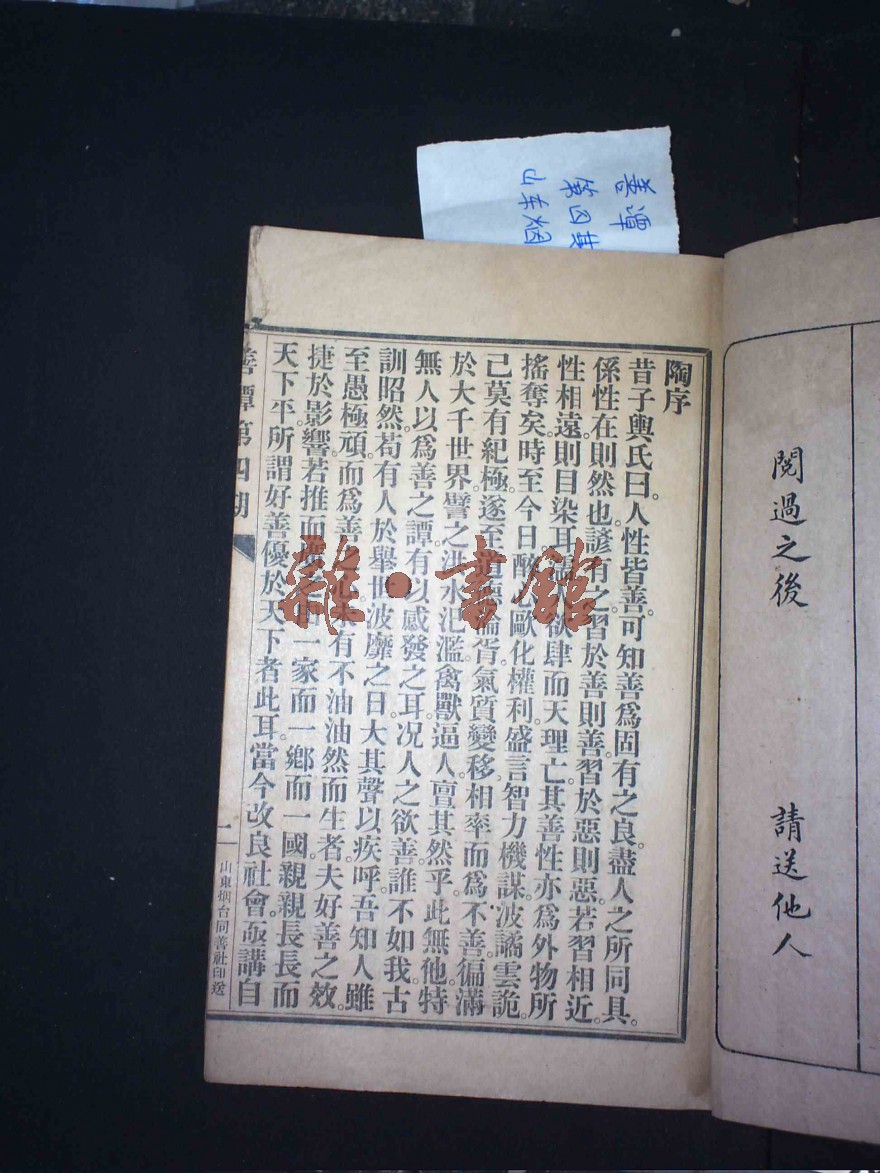 閱過之後 請送他人
陶序
昔子輿氏曰。人性皆善。可知善爲固有之良。盡人之所同具。
係性在則然也。諺有之。習於善則善。習於惡則惡。若習相近。
性相遠。則目染耳 欲肆而天理亡。其善性亦爲外物所
搖奪矣。時至今日。醉心歐化。權利盛言。智力機謀。波譎雲詭。
己莫有紀極。遂至道 論胥。氣質變移。相率而爲不善。徧滿
於大千世界。譬之洪水汜濫。禽獸逼人。亶其然乎。此無他。特
無人以爲善之譚。有以感發之耳。况人之欲善。誰不如我。古
訓昭然。苟有人於舉世波靡之日。大其聲以疾呼。吾知人雖
至愚極頑。而爲善 心未有不油油然而生者。夫好善之效。
捷於影響。若推而廣之。由一家而一鄉而一國。親親長長而
天下平。所謂好善優於天下者。此耳。當今改良社會。亟講自
善譚第四期
一
山東烟台同善社印送
善譚
第四其
山东烟
雜·書館